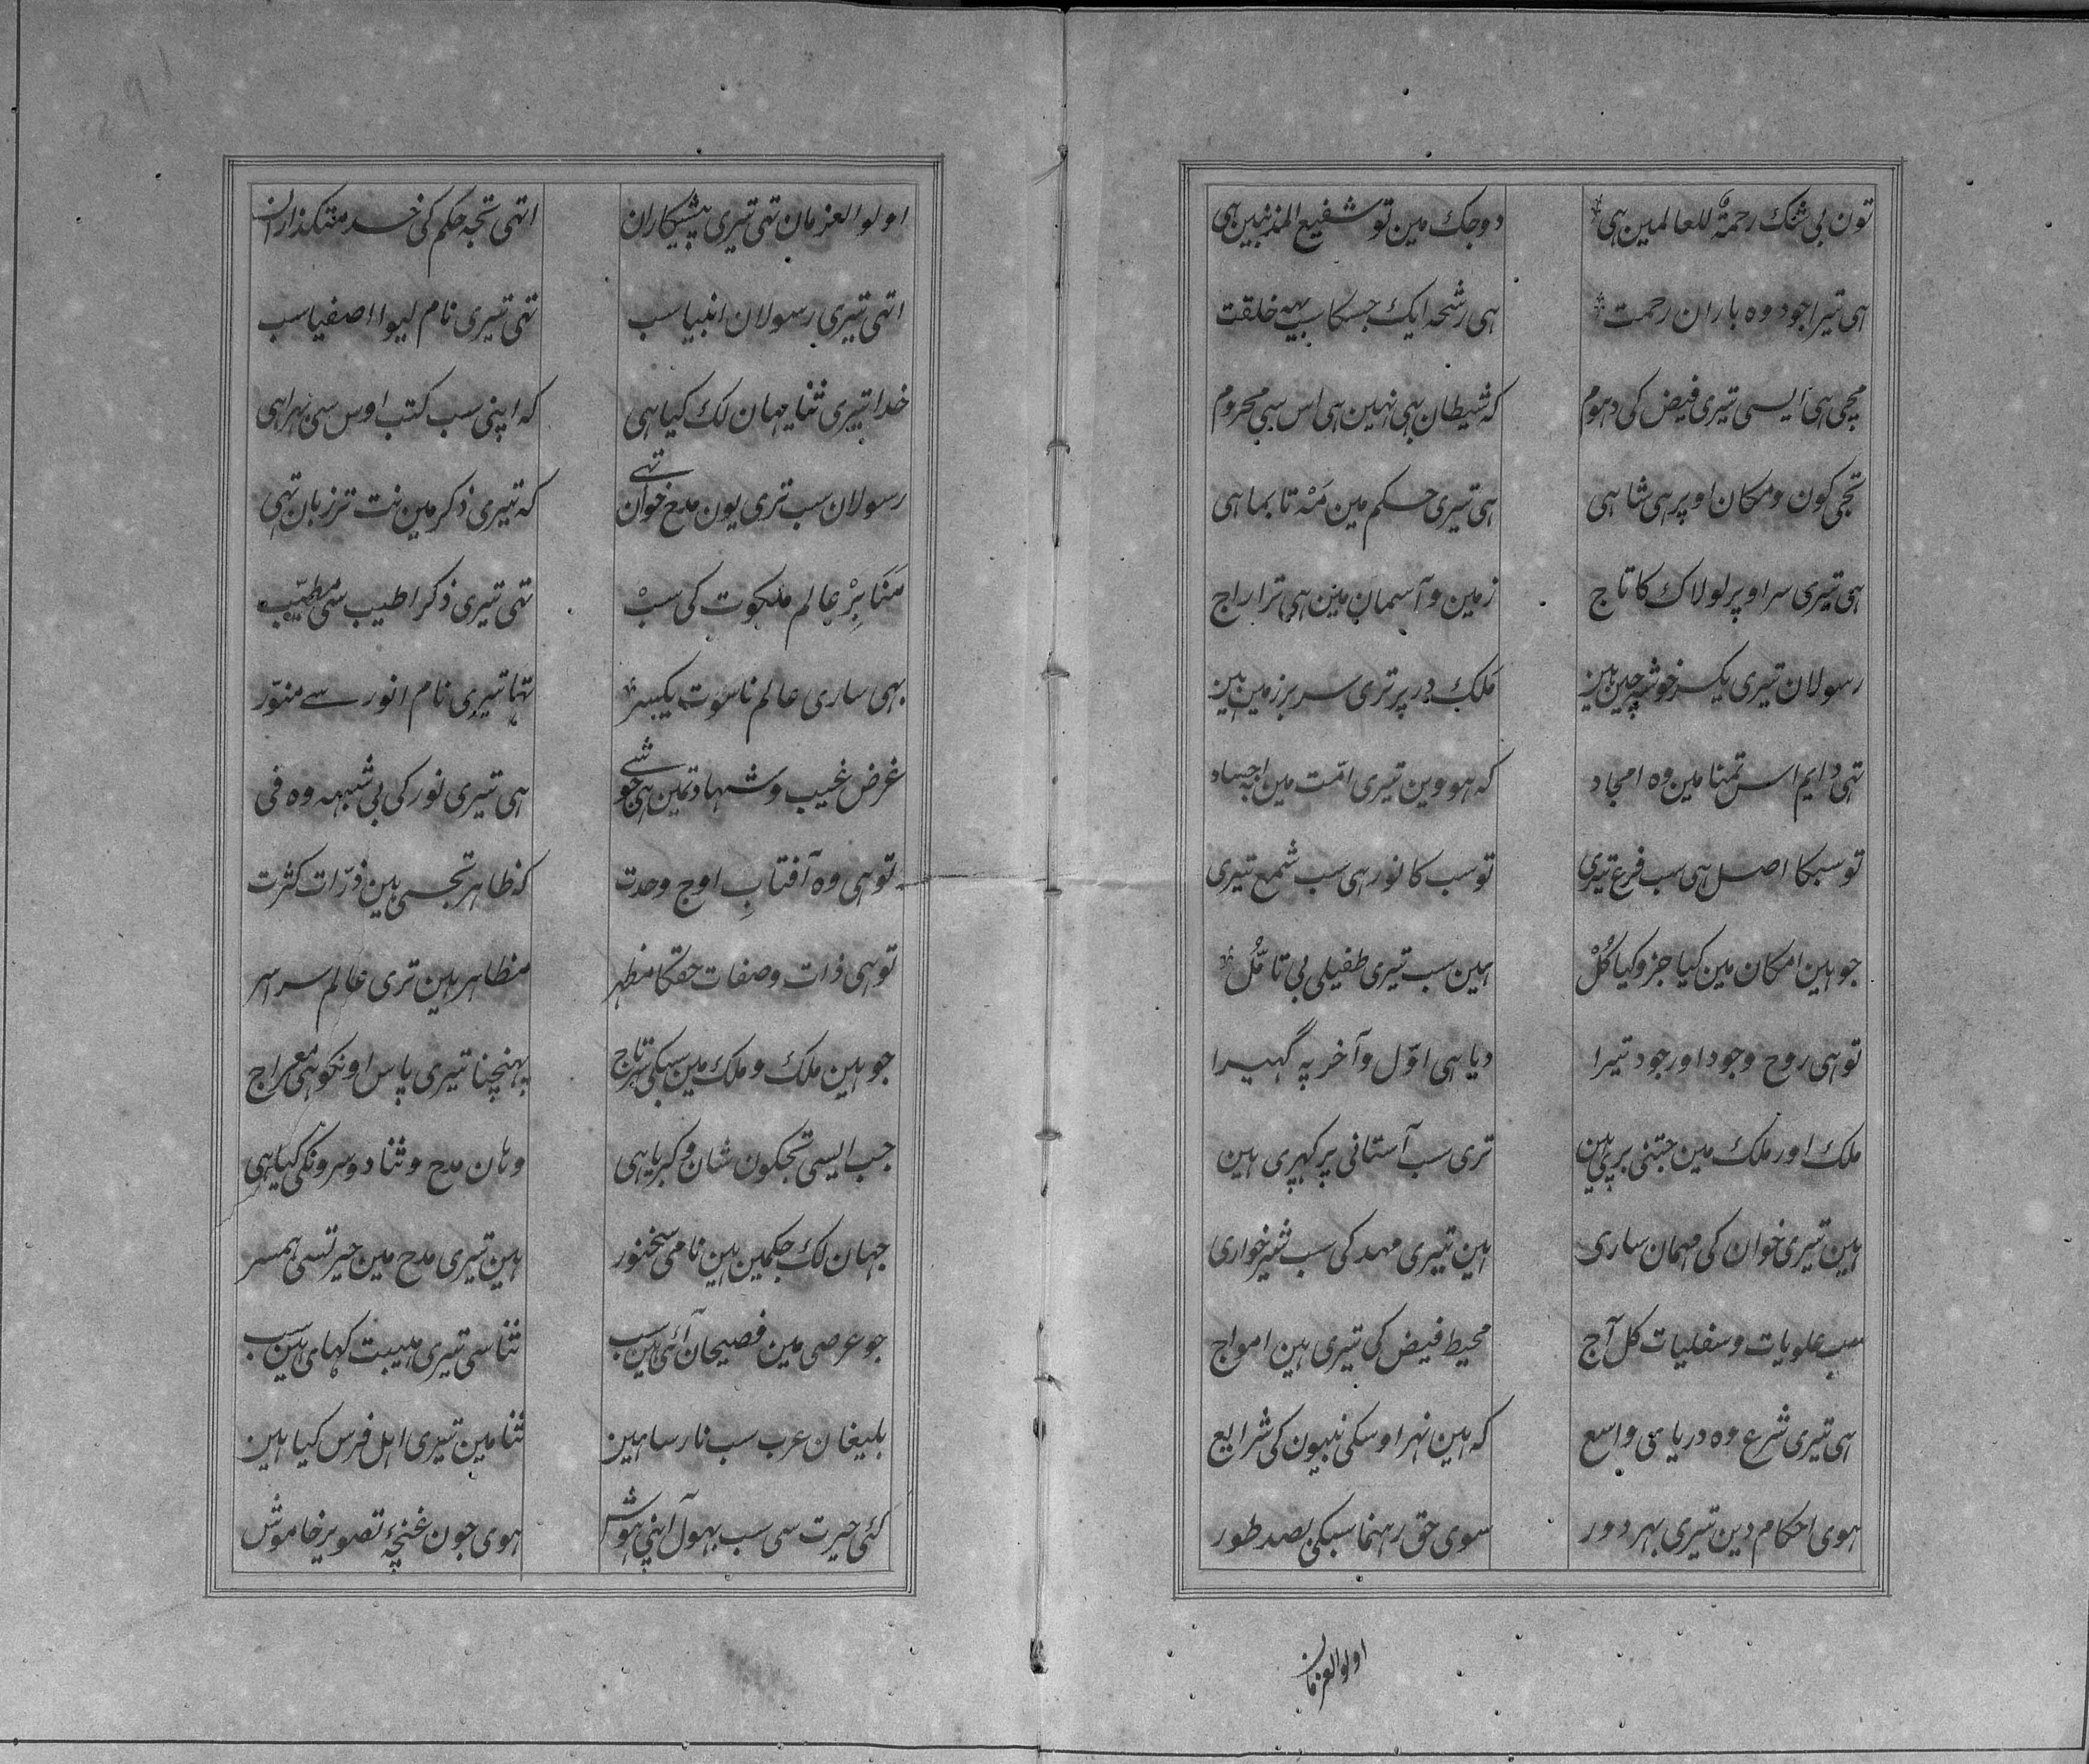 تون بی شک رحمۃ للعالمین ہی دوجک مین تو شفیع المذنبین ہی
ہی تیرا جود وہ باران رحمت ہی رشحہ ایک جسکا سب یہہ خلقت
مچی ہی ایسی تیری فیض کی دہوم کہ شیطان بہی نہین ہی اس سی محروم
تجی کون و مکان اوپر ہی شاہی ہی تیری حکم مین مَہْ تا بماہی
ہی تیری سر اوپر لولاک کا تاج زمین و آسمان مین ہی ترا راج
رسولان تیری یکسر خوشہ چین ہین مَلَک در پر تری سر بر زمین ہین
تہی دایم اس تمنا مین وہ امجاد کہ ہووین تیری امّت مین اجہاد
تو سبکا اصل ہی سب فرع تیری تو سب کا نور ہی سب شمع تیری
جو ہین امکان مین کیا جز و کیا کُلْ ہین سب تیری طفیلی بی تامّل
تو ہی روح وجود اور جود تیرا دیا ہی اوّل و آخر پہ گہیرا
ملک اور ملک مین جتنی بری ہین تری سب آستانی پر کہری ہین
ہین تیری خوان کی مہمان ساری ہین تیری مہد کی سب شیر خواری
سب علویات و سفلیات کل آج محیط فیض کی تیری ہین امواج
ہی تیری شرع وہ دریا سی واسع کہ ہین نہر اوسکی نبیون کی شرایع
ہوی احکام دین تیری بہر دور سوی حق رہنما سبکی بصد طور
اولوالعزمان
اولوالعزمان تہی تیری پیشکاران اتہی تجہ حکم کی خدمتکذاران
اتہی تیری رسولان انبیا سب تہی تیری نام لیوا اصفیا سب
خدا تیری ثنا یہان لک کیا ہی کہ اپنی سب کتب اوس سی بہرا ہی
رسولان سب تری یون مدح خوان تہی کہ تیری ذکر مین نت تر زبان تہی
مَنَابِرْ عالم ملکوت کی سبْ تہی تیری ذکر اطیب سی مطیّب
بہی ساری عالم ناسوت یکسر تہا تیری نام انور سے منوّر
غرض غیب و شہادتمین ہی جو شے ہی تیری نور کی بی شبہہ وہ فی
تو ہی وہ آفتابِ اوج وحدت کہ ظاہر تجسی ہین ذرّات کثرت
تو ہی ذات و صفات حقکا مظہر مظاہر ہین تری عالم سراسر
جو ہین ملک و ملک مین سبکی سرتاج پہنچنا تیری پاس اونکو ہی معراج
جب ایسی تجکون شان و کبریا ہی وہان مدح و ثنا دوسرونکی کیا ہی
جہان لک جکمین ہین نامی سخنور ہین تیری مدح مین حیرتسی ہمسر
جو عرصی مین فصیحان آئی ہین سب ثنا سی تیری ہیبت کہای ہین سب
بلیغان عرب سب نارسا ہین ثنا مین تیری اہل فرس کیا ہین
کئی حیرت سی سب بہول آپنی ہوش ہوی جون غنچۂ تصویر خاموش